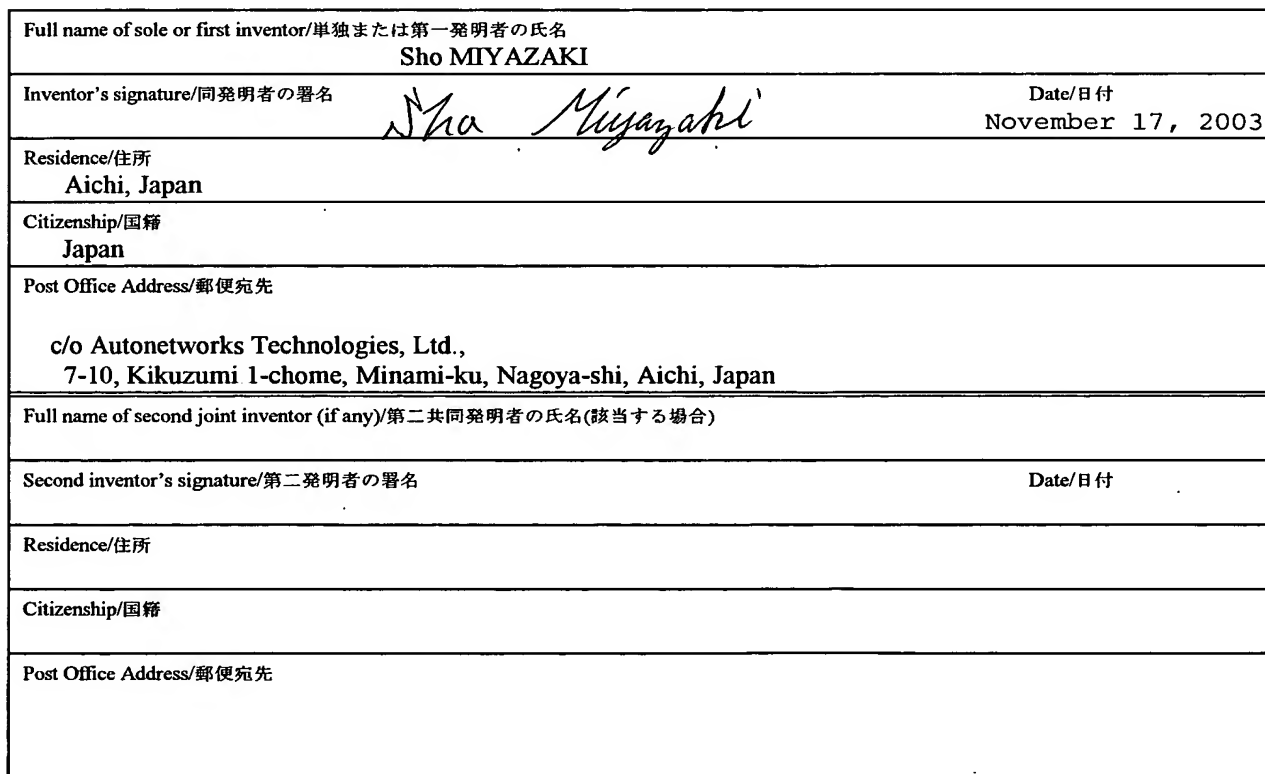 Full name of sole or first inventor/単独または第一発明者の氏名
Sho MIYAZAKI
Inventor's signature/同発明者の署名
Sho Miyazaki
Date/日付
November 17, 2003
Residence/住所
Aichi, Japan
Citizenship/国籍
Japan
Post Office Address/郵便宛先
c/o Autonetworks Technologies, Ltd.,
7-10, Kikuzumi 1-chome, Minami-ku, Nagoya-shi, Aichi, Japan
Full name of second joint inventor (if any)/第二共同発明者の氏名(該当する場合)
Second inventor's signature/第二発明者の署名
Date/日付
Residence/住所
Citizenship/国籍
Post Office Address/郵便宛先